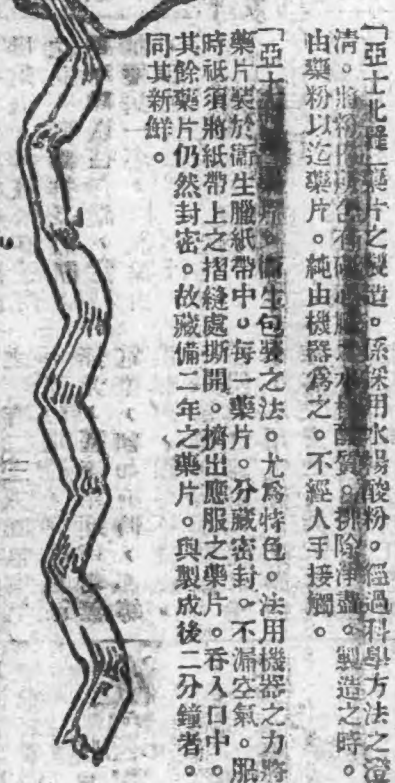 「亞士北羅」藥片之製造。係採用水楊酸粉。經過科學方法之澄
清。將粉中所含有礙心臟之水楊酸質。排除淨盡。製造之時。
由藥粉以迄藥片。純由機器爲之。不經人手接觸。
「亞士 衞生包裝之法。尤爲特色。法用機器之力將
藥片裝於衞生臘紙帶中。每一藥片。分藏密封。不漏空氣。服
時祇須將紙帶上之摺縫處撕開。擠出應服之藥片。吞入口中。
其餘藥片仍然封密。故藏備二年之藥片。與製成後二分鐘者。
同其新鮮。